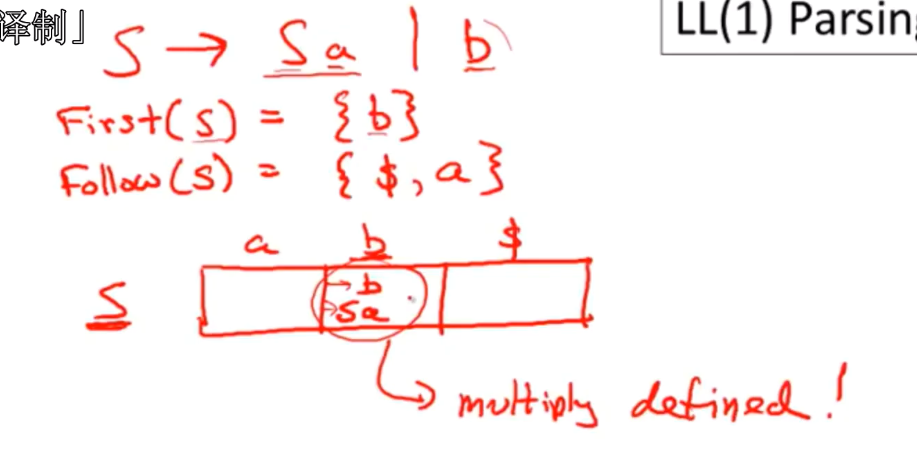 译制」
LL(1) Parsing
S → Sa | b
First(S) = {b}
Follow(S) = {$, a}
a b $
S → b
→ Sa
multiply defined!